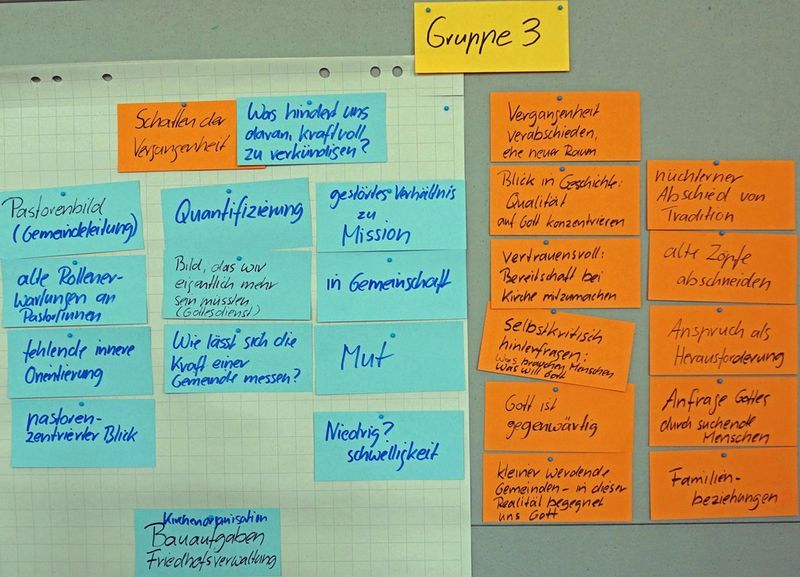 Gruppe 3
Schatten der
Vergangenheit
Was hindert uns
daran, kraftvoll
zu verkündigen?
Pastorenbild
(Gemeindeleitung)
alte Rollener-
wartungen an
Pastorinnen
fehlende innere
Orientierung
pastoren-
zentrierter Blick
Quantifizierung
Bild, das wir
eigentlich mehr
sein müssten
(Gottesdienst)
Wie lässt sich die
Kraft einer
Gemeinde messen?
gestörtes Verhältnis
zu
Mission
in Gemeinschaft
Mut
Niedrig?
schwelligkeit
Kirchenorganisation
Bauaufgaben
Friedhofsverwaltung
Vergangenheit
verabschieden,
ehe neuer Raum
Blick in Geschichte:
Qualität
auf Gott konzentrieren
vertrauensvoll:
Bereitschaft bei
Kirche mitzumachen
selbstkritisch
hinterfragen:
Was brauchen Menschen
Was will Gott
Gott ist
gegenwärtig
kleiner werdende
Gemeinden - in dieser
Realität begegnet
uns Gott
nüchterner
Abschied von
Tradition
alte Zöpfe
abschneiden
Anspruch als
Herausforderung
Anfrage Gottes
durch suchende
Menschen
Familien-
beziehungen